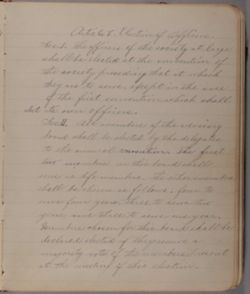 Article 6. Election of Officers
Sec 1. The officers of the society at large
shall be elected at the convention of
the society preceding that at which
they are to serve, except in the case
of the first convention which shall
elect its own officers.
Sec 2. The members of the advisory
board shall be elected by the delegates
to the annual convention. The first
two members on this board shall
serve as life members. The other members
shall be chosen as follows: four to
serve four years, three to serve two
years and three to serve one year.
Members chosen for this board shall be
declared elected if they receive a
majority vote of the members present
at the meeting of their election.